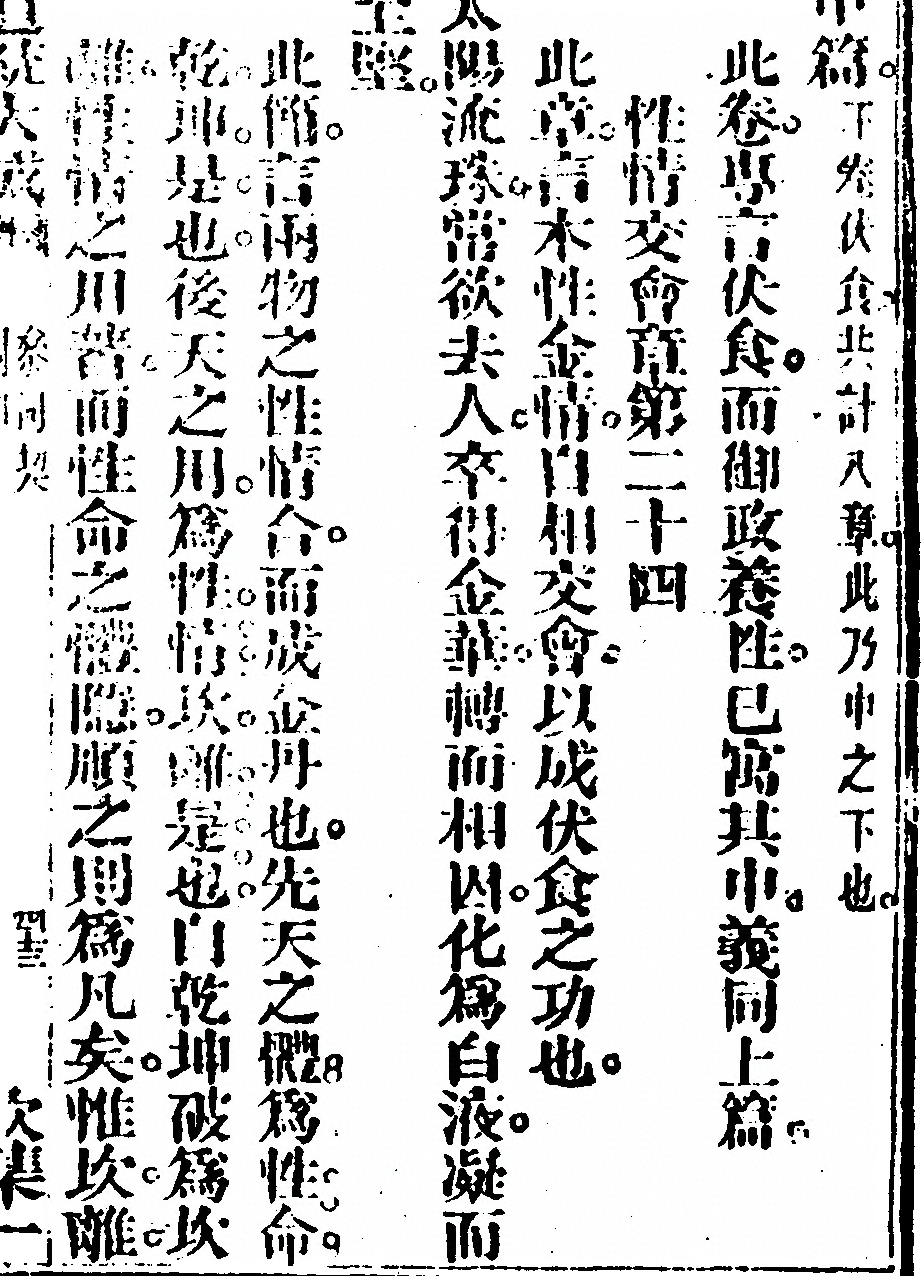 中篇。下卷伏食共計八章此乃中之下也。
此卷專言伏食。而御政養性。已寓其中。義同上篇。
性情交會章第二十四
此章言木性金情。自相交會。以成伏食之功也。
太陽流珠。常欲去人。卒得金華。轉而相因。化爲白液。凝而
至堅。
此節。言兩物之性情合。而成金丹也。先天之體。爲性命。
乾坤是也。後天之用。爲性情。坎離是也。自乾坤破爲坎
離。性情之用著。而性命之體隱。順之則爲凡矣。惟坎離
道統大成 參同契 四十三 火集一